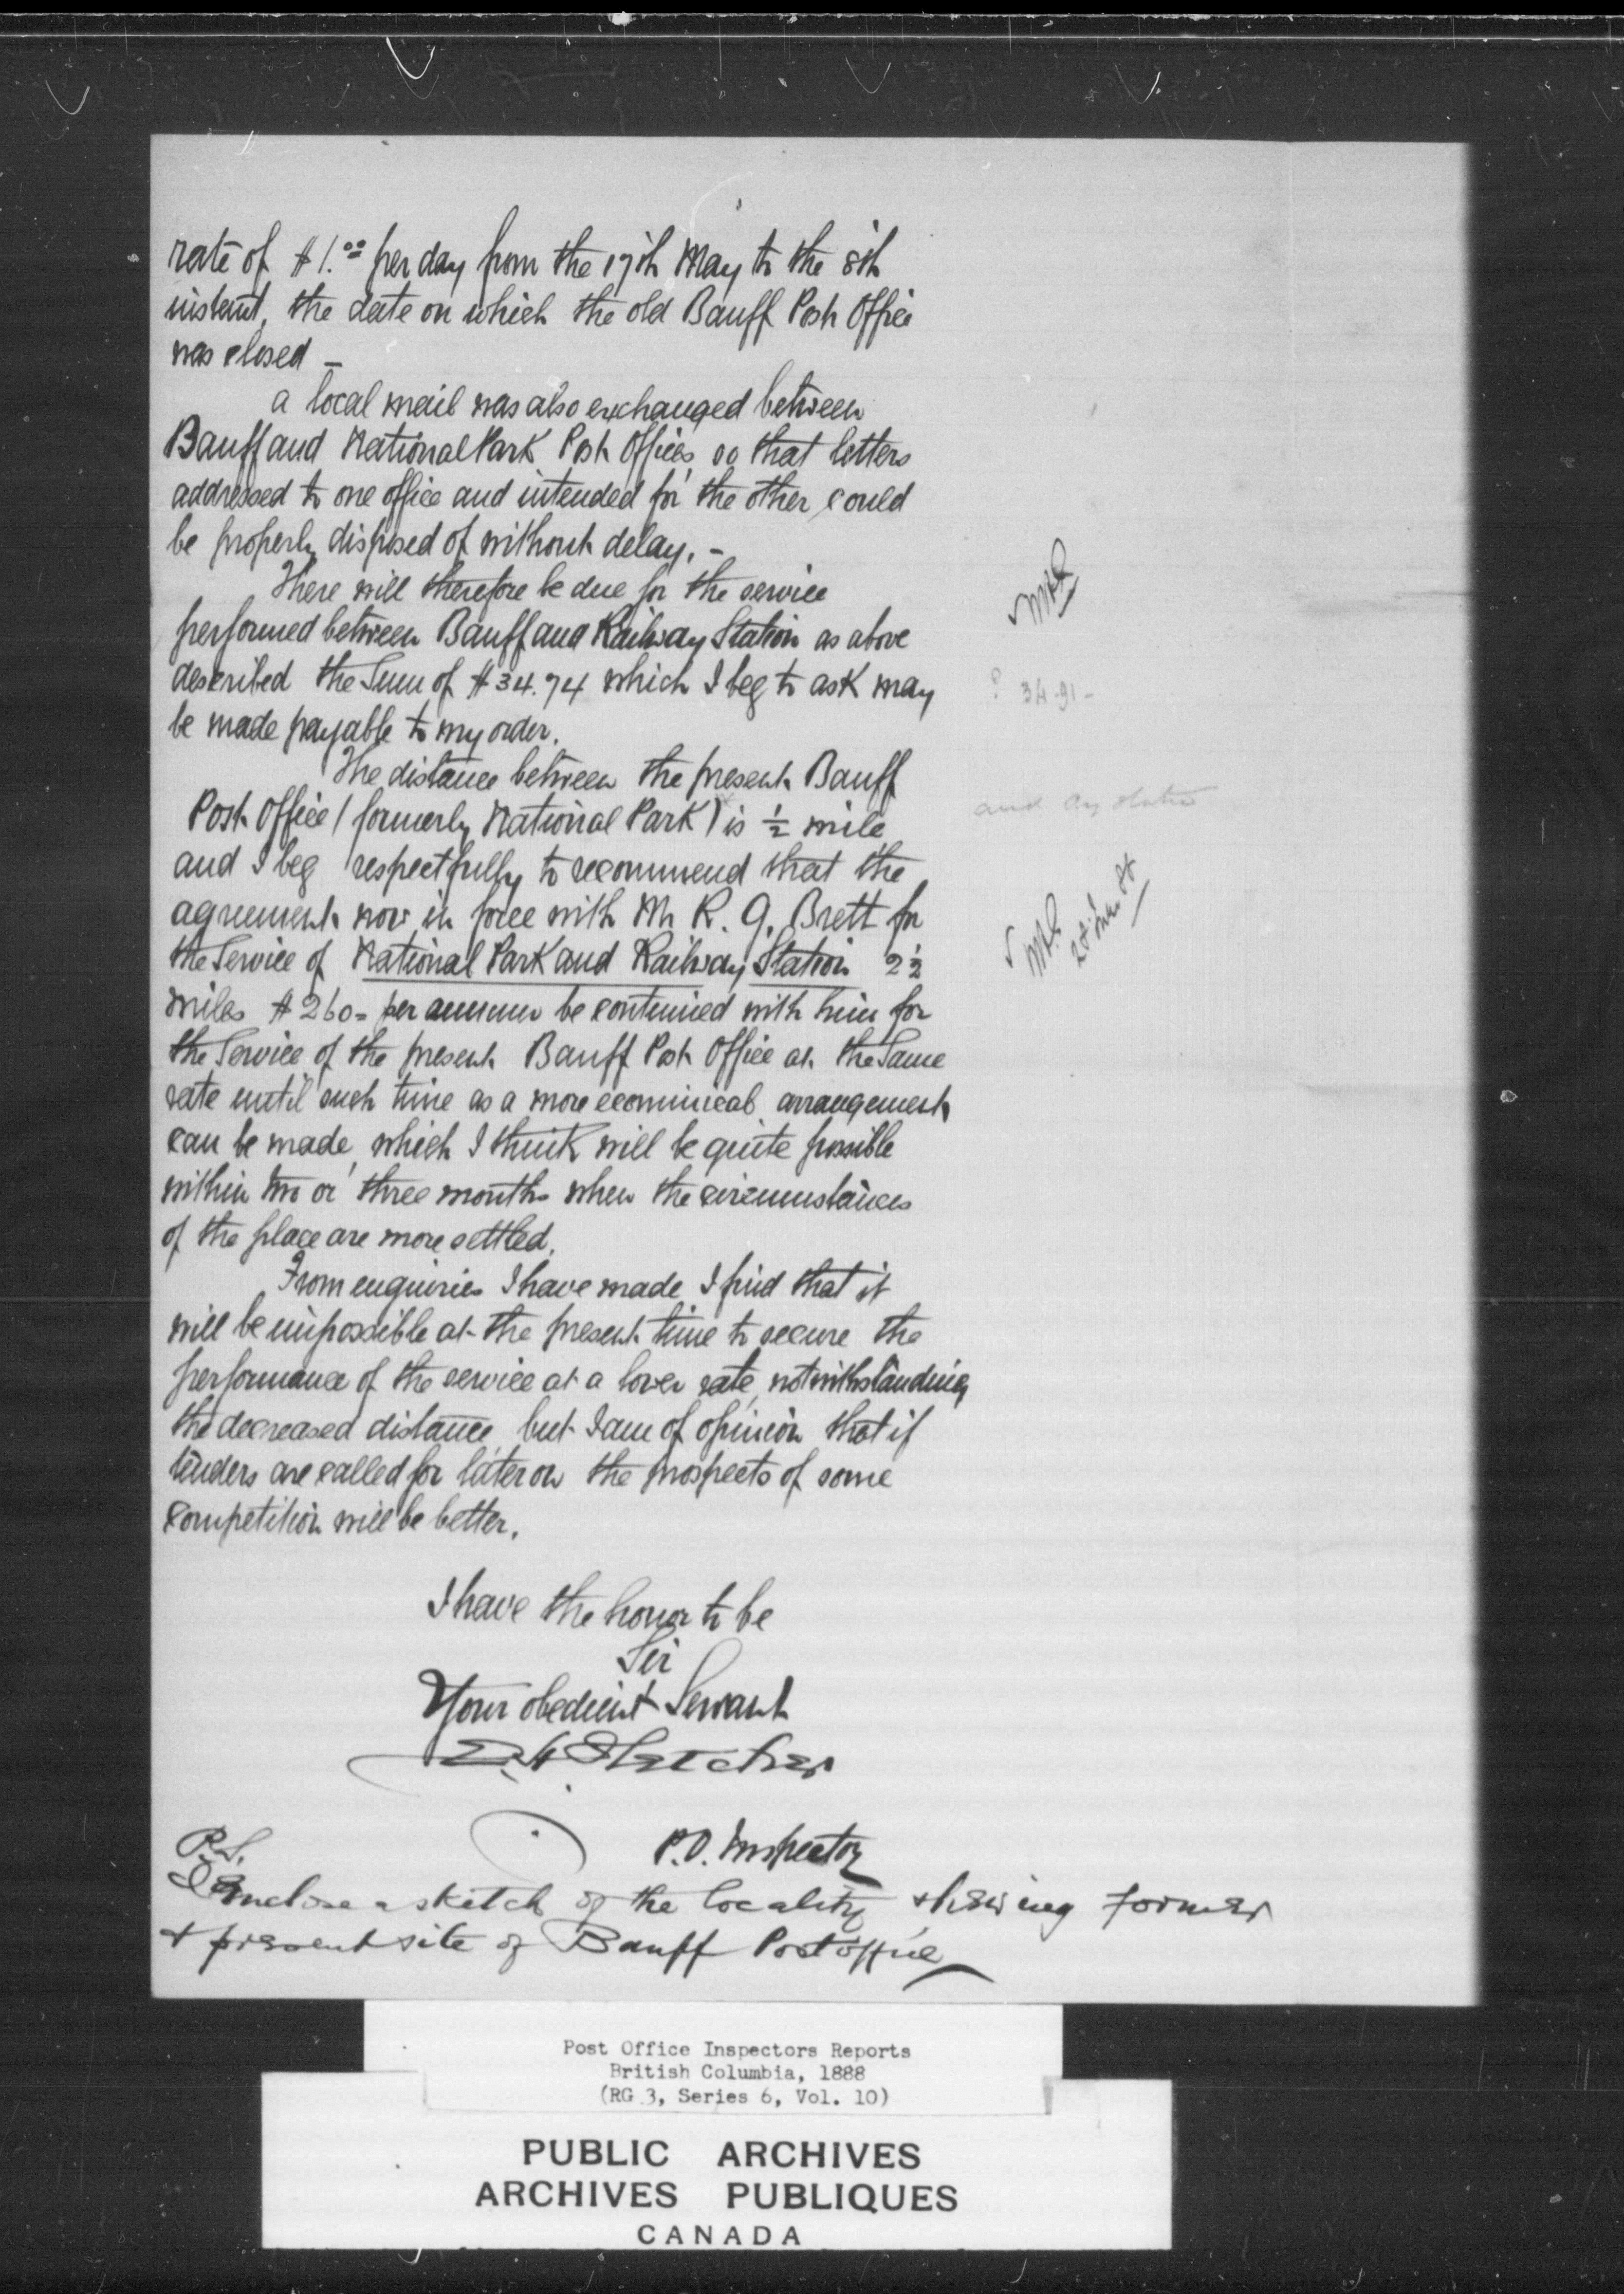 rate of $1.00 per day from the 17th May to the 8th
instant, the date on which the old Banff Post Office
was closed –
a local mail was also exchanged between
Banff and National Park Post Offices so that letters
addressed to one office and intended for the other could
be properly disposed of without delay. –
There will therefore be due for the service
performed between Banff and Railway Station as above
described the Sum of $34.74 which I beg to ask may
? 34.91 -
be made payable to my order.
The distance between the present Banff
Post Office (formerly National Park) is ½ mile
and
and I beg respectfully to recommend that the
agreement now in force with Mr R. G. Brett for
the Service of National Park and Railway Station 2½
miles $260 = per annum be continued with him for
the Service of the present Banff Post Office at the Same
rate until such time as a more economical arrangement
can be made, which I think will be quite possible
within two or three months when the circumstances
of the place are more settled.
From enquiries I have made I find that it
will be impossible at the present time to secure the
performance of the service at a lower rate, notwithstanding
the decreased distance, but I am of opinion that if
tenders are called for later on the prospects of some
competition will be better.
I have the honor to be
Sir
Your obedient Servant
E. H. Fletcher
P.O. Inspector
P.S.
I Enclose a sketch of the locality shewing former
+ present site of Banff Post office
Post Office Inspectors Reports
British Columbia, 1888
(RG 3, Series 6, Vol. 10)
PUBLIC ARCHIVES
ARCHIVES PUBLIQUES
CANADA